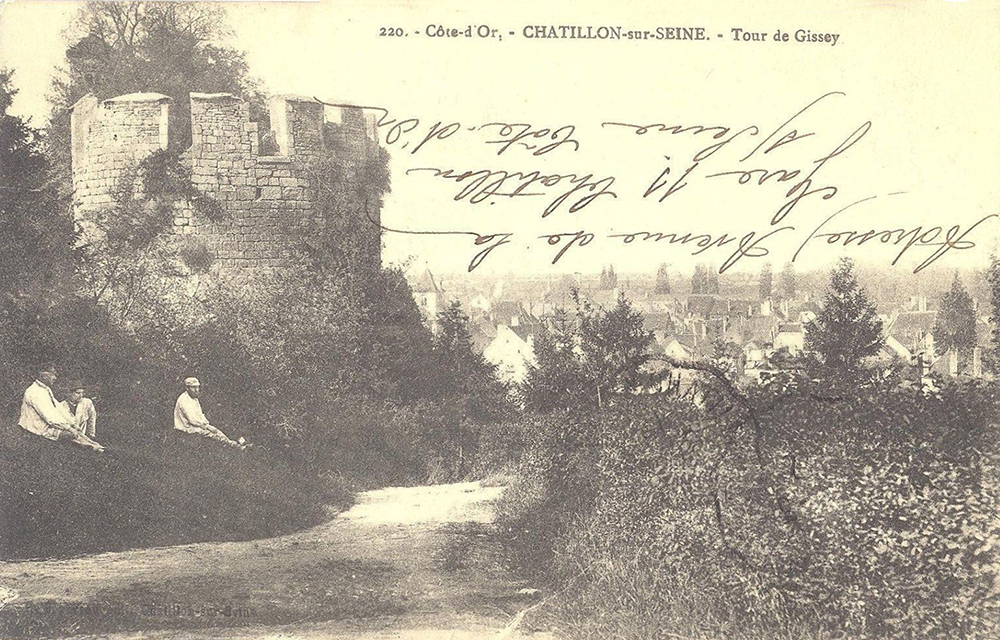 220. - Côte-d'Or. - CHATILLON-sur-SEINE. - Tour de Gissey
Adresse, Avenue de la
Gare 11 Chatillon
s/ Seine Côte-d'Or
Chatillon-sur-Seine